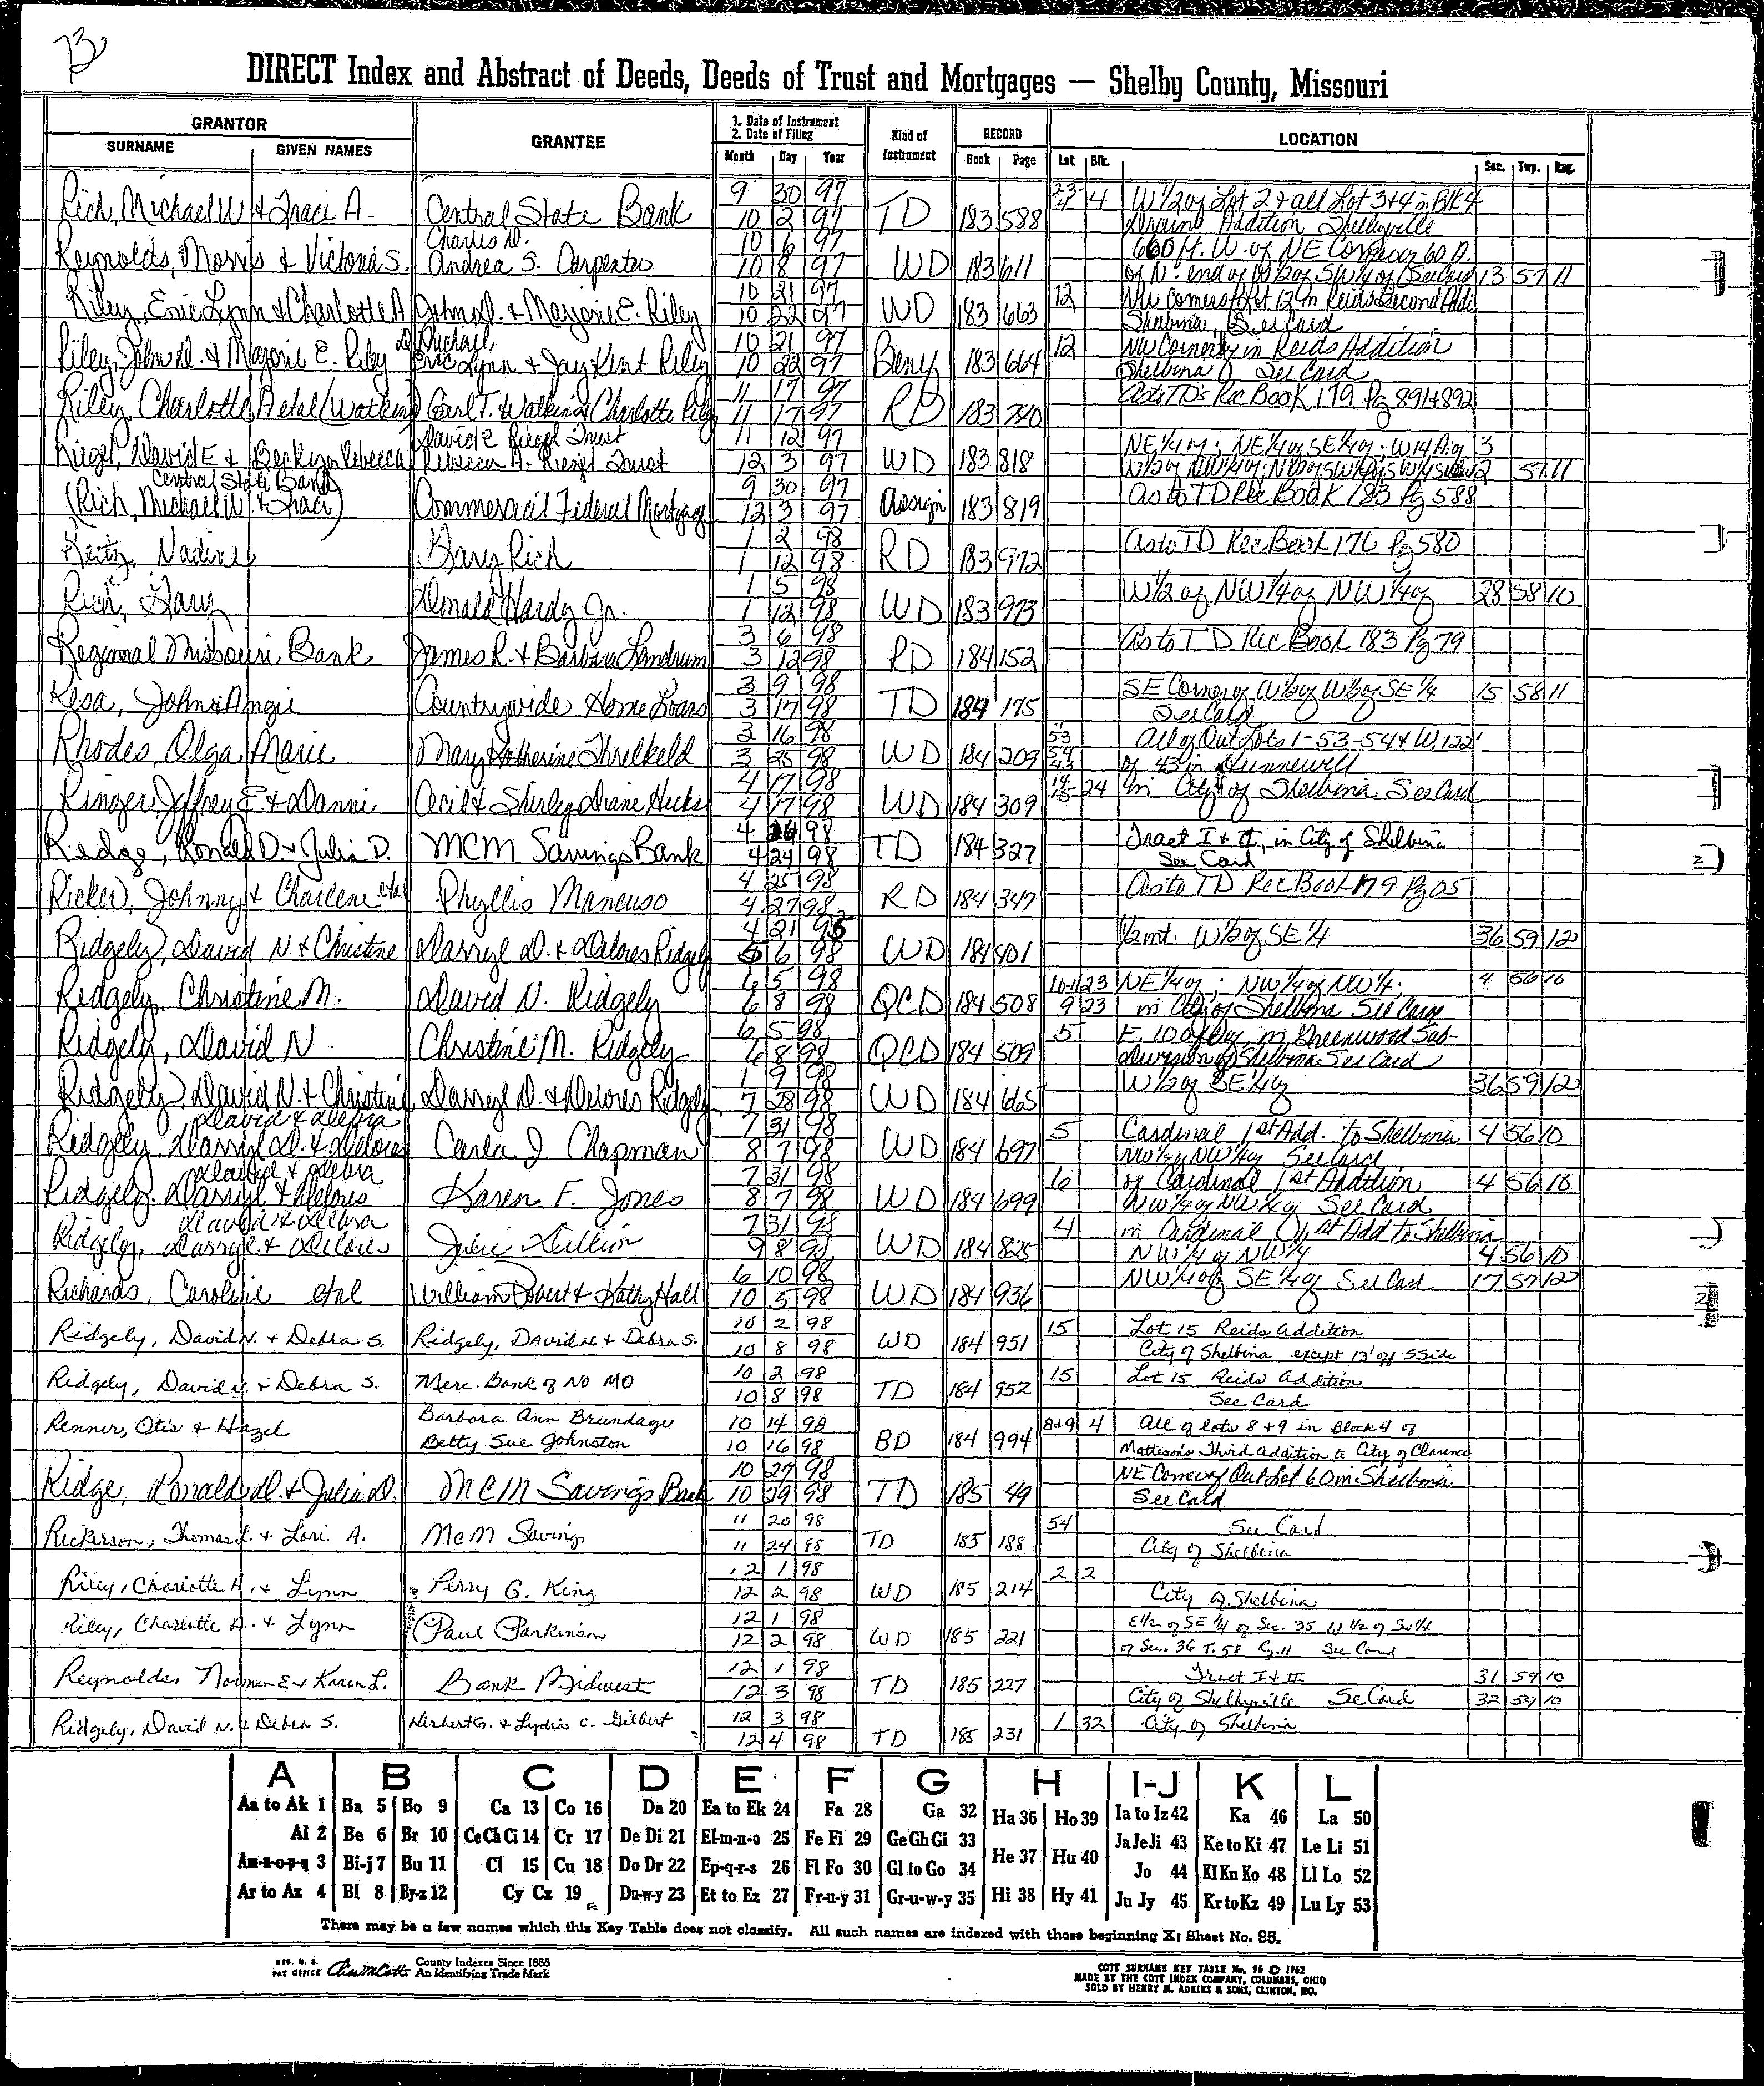 B
DIRECT Index and Abstract of Deeds, Deeds of Trust and Mortgages — Shelby County, Missouri
GRANTOR
SURNAME GIVEN NAMES
GRANTEE
1. Date of Instrument
2. Date of Filing
Month Day Year
Kind of Instrument
RECORD
Book Page
LOCATION
Lot Blk. Sec. Twp. Rng.
Rich, Michael W & Traci A. Central State Bank 9 30 97 TD 183 588 2-3-4 4 W 1/2 of Lot 2 & all Lot 3+4 in Blk 4
10 2 97 Addition Shelbyville
Reynolds, Morris & Victoria S. Charles D. 10 6 97 WD 183 611 660 ft. W. of NE Corner 60 A.
Andrea S. Carpenter 10 8 97 of N. end of W 1/2 of SW 1/4 of See Card 13 57 11
Riley, Eric Lynn & Charlotte A John D. & Marjorie E. Riley 10 21 97 WD 183 663 12 NW Corner of Lot 12 in Reids Second Addi
10 22 97 Shelbina, See Card
Riley, John D. & Marjorie E. Riley D Michael, 10 21 97 Beny 183 664 12 NW Corner in Reids Addition
Eric Lynn & Jay Kent Riley 10 22 97 Shelbina See Card
Riley, Charlotte A etal (Watkins) Carl T. Watkins Charlotte Riley 11 17 97 RD 183 740 As to TD's Rec Book 179 Pg 891+892
11 17 97
Riegel, David E & Becky or Rebecca David E Riegel Trust 11 12 97 WD 183 818 NE 1/4 of; NE 1/4 of SE 1/4 of; W 14 A. of 3
Rebecca A. Riegel Trust 12 3 97 W 1/2 of NW 1/4 of; 2 57 11
Central State Bank
(Rich, Michael W. & Traci) Commercial Federal Mortgage 9 30 97 Assign 183 819 As to TD Rec Book 183 Pg 588
12 3 97
Reitz, Nadine Gary Rich 1 2 98 RD 183 972 As to TD Rec Book 176 Pg 580
1 12 98
Rich, Gary Donald Hardy Jr. 1 5 98 WD 183 973 W 1/2 of NW 1/4 of NW 1/4 of 28 58 10
1 12 98
Regional Missouri Bank James R. & Barbara Landrum 3 6 98 RD 184 152 As to TD Rec Book 183 Pg 79
3 12 98
Resa, John & Angie Countrywide Home Loans 3 9 98 TD 184 175 SE Corner of W 1/2 of W 1/2 of SE 1/4 15 58 11
3 17 98 See Card
Rhodes, Olga Marie Mary Katherine Threlkeld 3 16 98 WD 184 209 1 53 54 43 All of Out Lots 1-53-54 & W. 122'
3 25 98 of 43 in Hunnewell
Ringer, Jeffrey E & Danni Cecil & Shirley Diane Hicks 4 17 98 WD 184 309 14-15 24 in City of Shelbina See Card
4 17 98
Redge, Ronald D. & Julia D. MCM Savings Bank 4 98 TD 184 327 Tract I & II, in City of Shelbina
4 24 98 See Card
Ricker, Johnny & Charlene etal Phyllis Mancuso 4 25 98 RD 184 347 As to TD Rec Book 179 Pg 05
4 27 98
Ridgely, David N. & Christine Darryl D. & Delores Ridgely 4 21 98 WD 184 401 1/2 int. W 1/2 of SE 1/4 36 59 12
5 6 98
Ridgely, Christine M. David N. Ridgely 6 5 98 QCD 184 508 10-11 23 NE 1/4 of; NW 1/4 of NW 1/4; 4 56 10
6 8 98 9 23 in City of Shelbina See Card
Ridgely, David N. Christine M. Ridgely 6 5 98 QCD 184 509 5 E. 100 of in Greenwood Sub-
6 8 98 division of Shelbina See Card
Ridgely, David N. & Christine Darryl D. & Delores Ridgely 1 9 98 WD 184 665 W 1/2 of SE 1/4 of 36 59 12
7 28 98
David & Debra
Ridgely, Darryl D. & Delores Carla J. Chapman 7 31 98 WD 184 697 5 Cardinal 1st Add. to Shelbina 4 56 10
8 7 98 NW 1/4 of NW 1/4 of See Card
David & Debra
Ridgely, Darryl & Delores Karen F. Jones 7 31 98 WD 184 699 6 of Cardinal 1st Addition 4 56 10
8 7 98 NW 1/4 of NW 1/4 of See Card
David & Debra
Ridgely, Darryl & Delores Julie 7 31 98 WD 184 825 4 in Cardinal 1st Add to Shelbina
9 8 98 NW 1/4 of NW 1/4 4 56 10
Richards, Caroline etal William Robert & Kathy Hall 6 10 98 WD 184 936 NW 1/4 of SE 1/4 of See Card 17 57 12
10 5 98
Ridgely, David N. & Debra S. Ridgely, David N. & Debra S. 10 2 98 WD 184 951 15 Lot 15 Reids Addition
10 8 98 City of Shelbina except 13' off S Side
Ridgely, David N. & Debra S. Merc. Bank of No MO 10 2 98 TD 184 952 15 Lot 15 Reids Addition
10 8 98 See Card
Renner, Otis & Hazel Barbara Ann Brundage 10 14 98 BD 184 994 8+9 4 All of lots 8+9 in Block 4 of
Betty Sue Johnston 10 16 98 Matteson's Third Addition to City of Clarence
Ridge, Ronald D. & Julia D. MCM Savings Bank 10 27 98 TD 185 49 NE Corner of Out Lot 60 in Shelbina
10 29 98 See Card
Rickerson, Thomas L. & Lori A. MCM Savings 11 20 98 TD 185 188 54 See Card
11 24 98 City of Shelbina
Riley, Charlotte A. & Lynn Perry G. King 12 1 98 WD 185 214 2 2
12 2 98 City of Shelbina
Riley, Charlotte A. & Lynn Paul Parkinson 12 1 98 WD 185 221 E 1/2 of SE 1/4 of Sec. 35 W 1/2 of SW 1/4
12 2 98 of Sec. 36 T. 58 Rg. 11 See Card
Reynolds, Norman E & Karen L. Bank Midwest 12 1 98 TD 185 227 Tract I & II 31 59 10
12 3 98 City of Shelbyville See Card 32 59 10
Ridgely, David N. & Debra S. Herbert G. & Lydia C. Gilbert 12 3 98 TD 185 231 1 32 City of Shelbina
12 4 98
A B C D E F G H I-J K L
Aa to Ak 1 Ba 5 Bo 9 Ca 13 Co 16 Da 20 Ea to Ek 24 Fa 28 Ga 32 Ha 36 Ho 39 Ia to Iz 42 Ka 46 La 50
Al 2 Be 6 Br 10 Ce Ch Ci 14 Cr 17 De Di 21 El-m-n-o 25 Fe Fi 29 Ge Gh Gi 33 He 37 Hu 40 Ja Je Ji 43 Ke to Ki 47 Le Li 51
Am-n-o-p-q 3 Bi-j 7 Bu 11 Cl 15 Cu 18 Do Dr 22 Ep-q-r-s 26 Fl Fo 30 Gl to Go 34 Jo 44 Kl Kn Ko 48 Ll Lo 52
Ar to Az 4 Bl 8 By-z 12 Cy Cz 19 Du-w-y 23 Et to Ez 27 Fr-u-y 31 Gr-u-w-y 35 Hi 38 Hy 41 Ju Jy 45 Kr to Kz 49 Lu Ly 53
There may be a few names which this Key Table does not classify. All such names are indexed with those beginning X; Sheet No. 85.
REG. U. S. PAT OFFICE County Indexes Since 1888
An Identifying Trade Mark
COTT SURNAME KEY TABLE No. 96 © 1962
MADE BY THE COTT INDEX COMPANY, COLUMBUS, OHIO
SOLD BY HENRY M. ADKINS & SONS, CLINTON, MO.